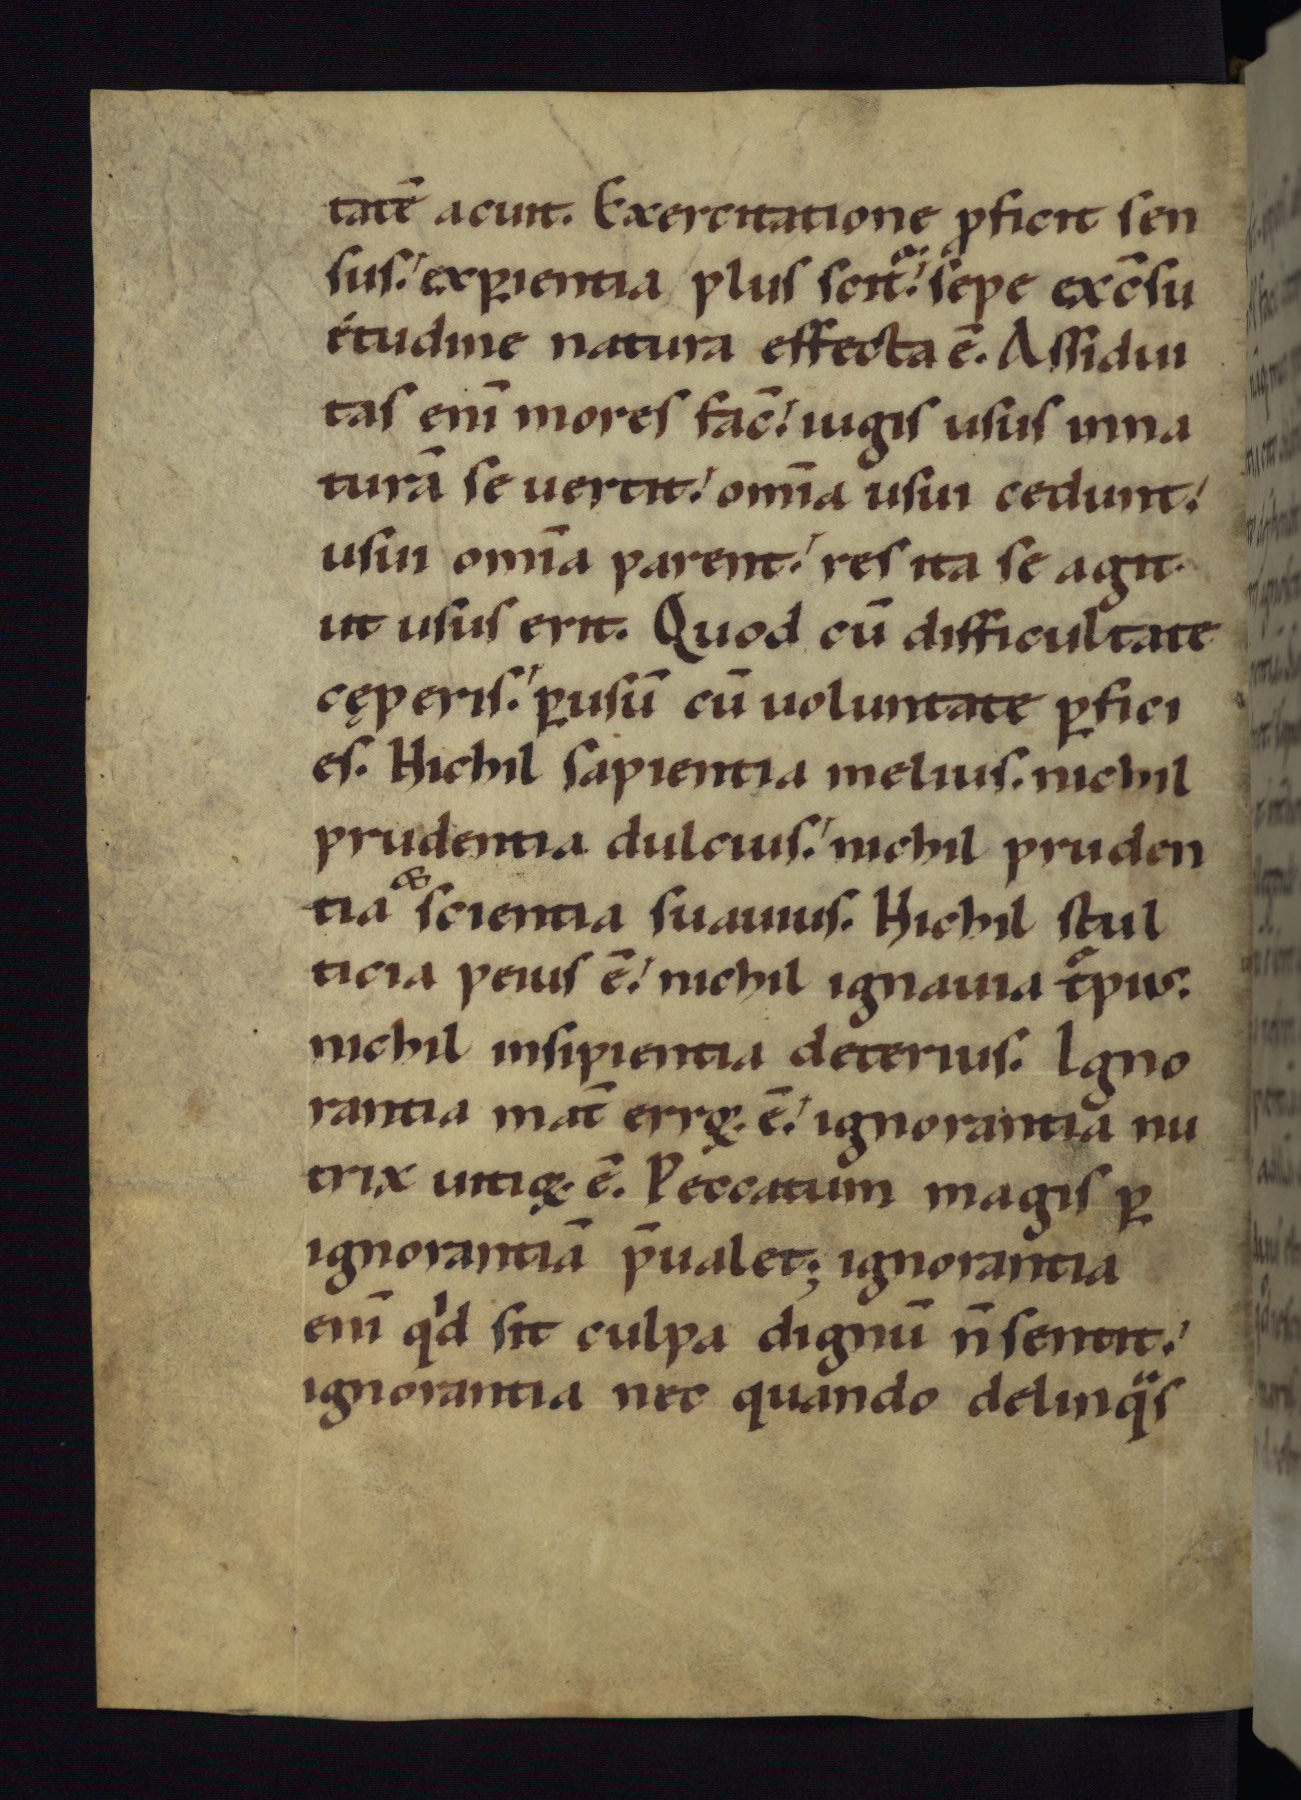 tatē acuit. Exercitatione ꝓficit sen
sus. exꝑientia plus scit̄. sepe exc̄su
etudine natura effecta ē. Assidui
tas enī mores fac̄. iugis usus inna
turā se uertit. om̄ia usui cedunt.
usui om̄ia parent. res ita se agit.
ut usus erit. Quod cū difficultate
cęperis. ꝑusū cū uoluntate ꝑfici
es. Nichil sapientia melius. nichil
prudentia dulcius. nichil pruden
tia & scientia suauius. Nichil stul
ticia peius ē. nichil ignauia t̄pius.
nichil insipientia deterius. Igno
rantia mat̄ erroꝝ. ē. ignorantia nu
trix uitioꝝ. ē. Peccatum magis ꝑ
ignorantiā p̄ualet; ignorantia
enī qⁱd sit culpa dignū n̄ sentit.
ignorantia nec quando delinqͣs